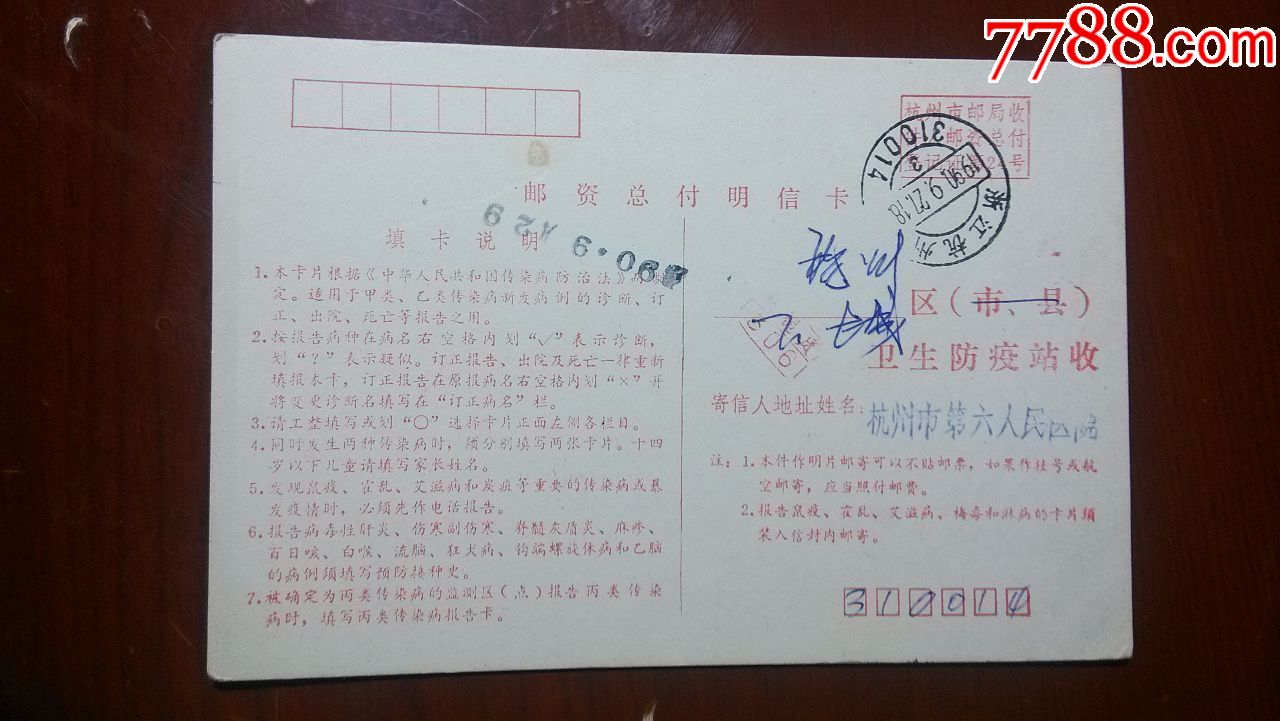 7788.com
杭州市邮局收
邮资总付
登记证第24号
310014
3
1990.9.27.18
浙江杭州
邮资总付明信卡
填卡说明
1.本卡片根据《中华人民共和国传染病防治法》而制
定。适用于甲类、乙类传染病新发病例的诊断、订
正、出院、死亡等报告之用。
2.按报告病种在病名右空格内划“√”表示诊断,
划“?”表示疑似。订正报告、出院及死亡一律重新
填报本卡,订正报告在原报病名右空格内划“×”并
将变更诊断名填写在“订正病名”栏。
3.请工整填写或划“○”选择卡片正面左侧各栏目。
4.同时发生两种传染病时,须分别填写两张卡片。十四
岁以下儿童请填写家长姓名。
5.发现鼠疫、霍乱、艾滋病和炭疽等重要的传染病或暴
发疫情时,必须先作电话报告。
6.报告病毒性肝炎、伤寒副伤寒、脊髓灰质炎、麻疹、
百日咳、白喉、流脑、狂犬病、钩端螺旋体病和乙脑
的病例须填写预防接种史。
7.被确定为丙类传染病的监测区(点)报告丙类传染
病时,填写丙类传染病报告卡。
杭州
下城
区(市、县)
卫生防疫站收
寄信人地址姓名:杭州市第六人民医院
注:1.本件作明片邮寄可以不贴邮票,如果作挂号或航
空邮寄,应当照付邮费。
2.报告鼠疫、霍乱、艾滋病、梅毒和淋病的卡片须
装入信封内邮寄。
310014